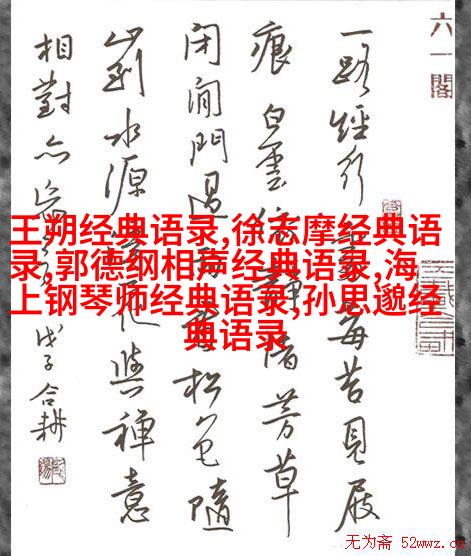 六一閣
一路經行處莓苔見屐
痕白雲依靜渚芳草
閉閑門過雨看松色隨
山到水源溪花與禪意
相對亦忘言
戊子合耕
王朔经典语录,徐志摩经典语
录,郭德纲相声经典语录,海
上钢琴师经典语录,孙思邈经
典语录
无为斋 52wwz.cn